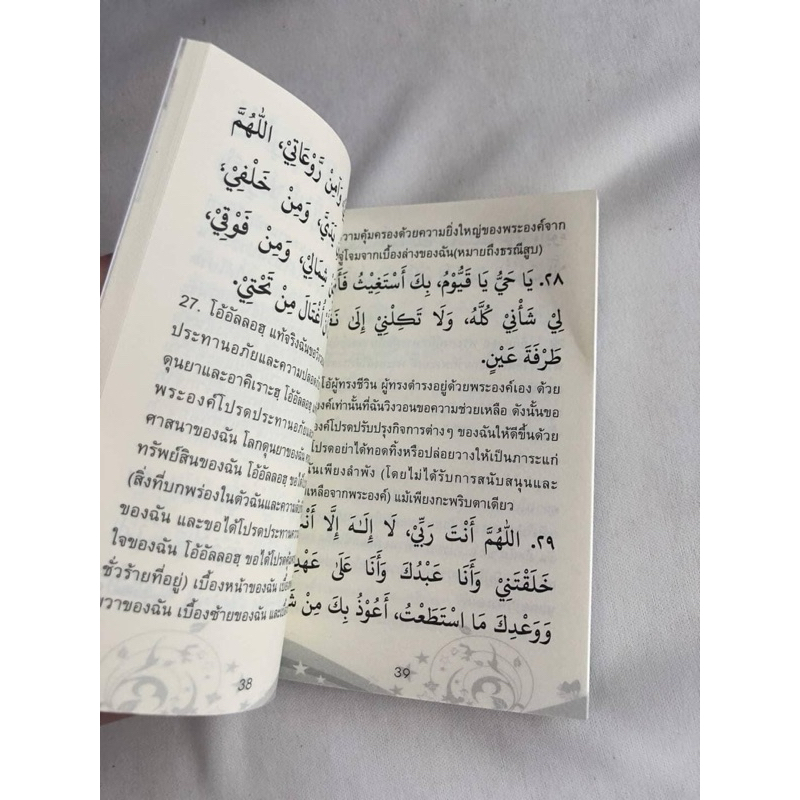 وَآمِنْ رَّوْعَاتِيْ، اَللّٰهُمَّ
يَدَيَّ، وَمِنْ خَلْفِيْ،
شِمَالِيْ، وَمِنْ فَوْقِيْ،
أُغْتَالَ مِنْ تَحْتِيْ.
27. โอ้อัลลอฮฺ แท้จริงฉันขอวิงว
ประทานอภัยและความปลอด
ดุนยาและอาคิเราะฮฺ โอ้อัลลอฮฺ
พระองค์โปรดประทานอภัยและ
ศาสนาของฉัน โลกดุนยาของฉัน
ทรัพย์สินของฉัน โอ้อัลลอฮฺ ขอได้
(สิ่งที่บกพร่องในตัวฉันและความ
ของฉัน และขอได้โปรดประทาน
ใจของฉัน โอ้อัลลอฮฺ ขอได้โปรด
ชั่วร้ายที่อยู่) เบื้องหน้าของฉัน
วาของฉัน เบื้องซ้ายของฉัน และ
38
วามคุ้มครองด้วยความยิ่งใหญ่ของพระองค์จาก
จู่โจมจากเบื้องล่างของฉัน(หมายถึงธรณีสูบ)
٢٨. يَا حَيُّ يَا قَيُّوْمُ، بِكَ أَسْتَغِيْثُ
لِيْ شَأْنِيْ كُلَّهُ، وَلَا تَكِلْنِيْ إِلَىٰ
طَرْفَةَ عَيْنٍ.
โอ้ผู้ทรงชีวิน ผู้ทรงดำรงอยู่ด้วยพระองค์เอง ด้วย
องค์เท่านั้นที่ฉันวิงวอนขอความช่วยเหลือ ดังนั้นขอ
องค์โปรดปรับปรุงกิจการต่างๆ ของฉันให้ดีขึ้นด้วย
โปรดอย่าได้ทอดทิ้งหรือปล่อยวางให้เป็นภาระแก่
ันเพียงลำพัง (โดยไม่ได้รับการสนับสนุนและ
เหลือจากพระองค์) แม้เพียงกะพริบตาเดียว
٢٩. اَللّٰهُمَّ أَنْتَ رَبِّيْ، لَا إِلٰـهَ إِلَّا
خَلَقْتَنِيْ وَأَنَا عَبْدُكَ وَأَنَا عَلَىٰ
وَوَعْدِكَ مَا اسْتَطَعْتُ، أَعُوْذُ بِكَ مِنْ
39